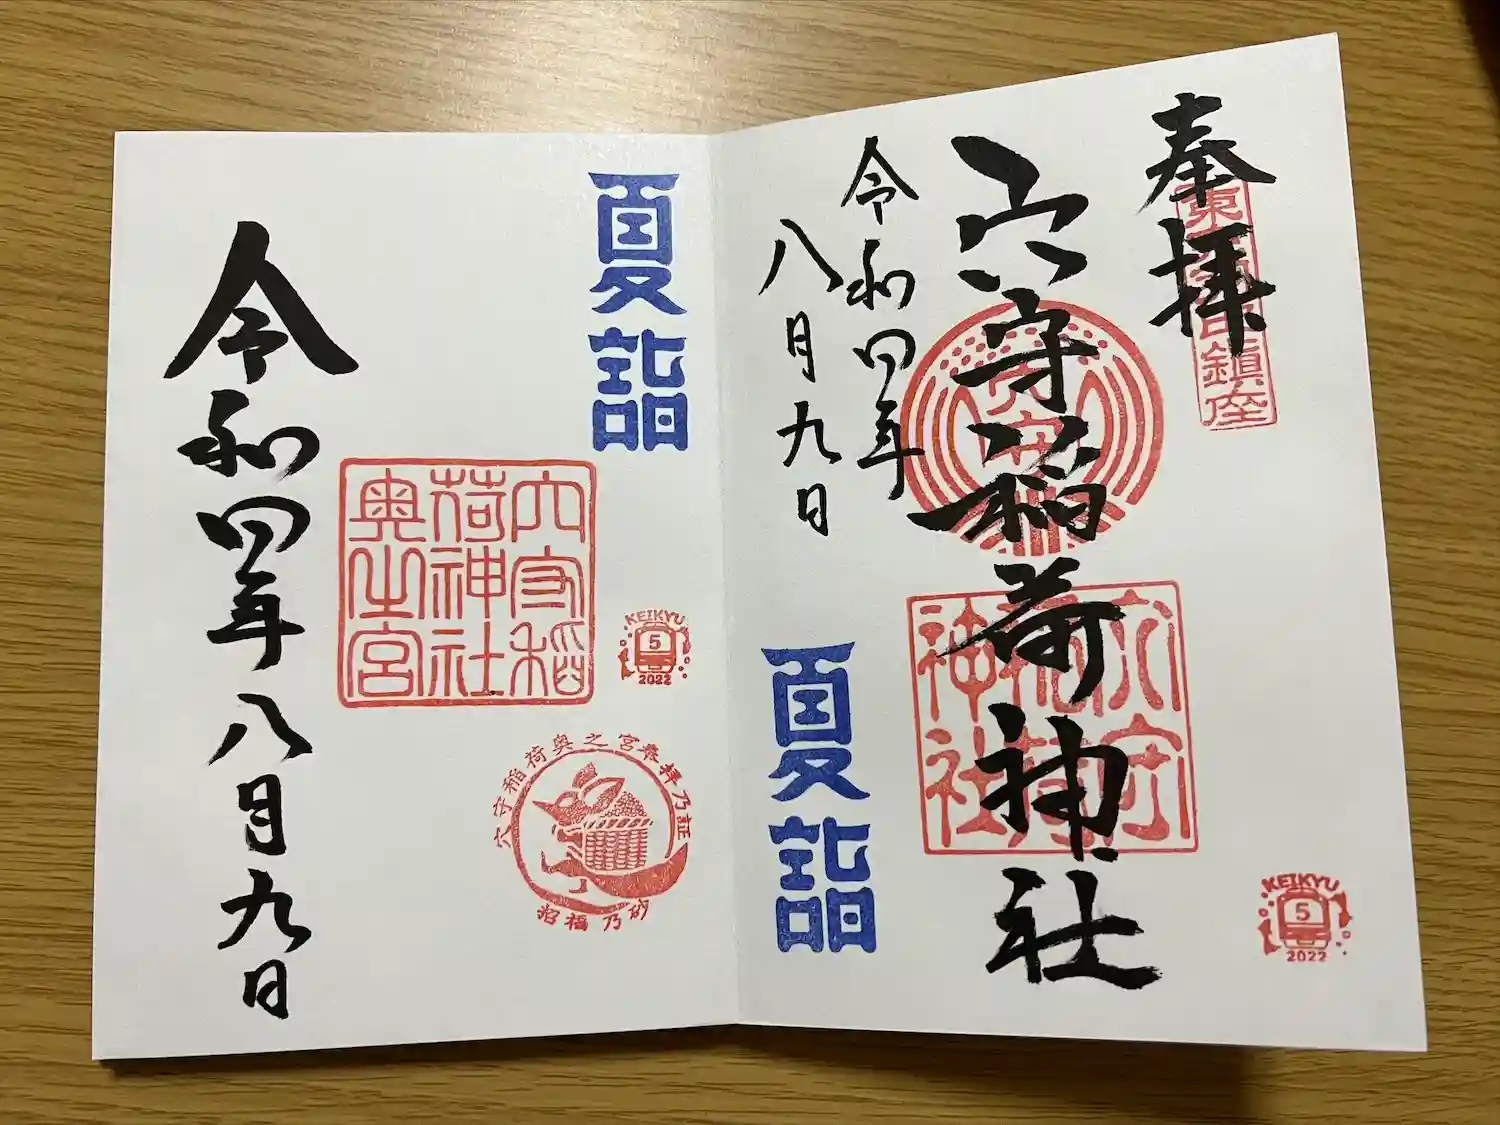 奉拝
東京羽田鎮座
穴守稲荷神社
穴守稲荷神社
令和四年
八月九日
夏詣
KEIKYU
5
2022
夏詣
穴守稲荷神社奥之宮
KEIKYU
5
2022
穴守稲荷奥之宮参拝乃証
招福乃砂
令和四年八月九日